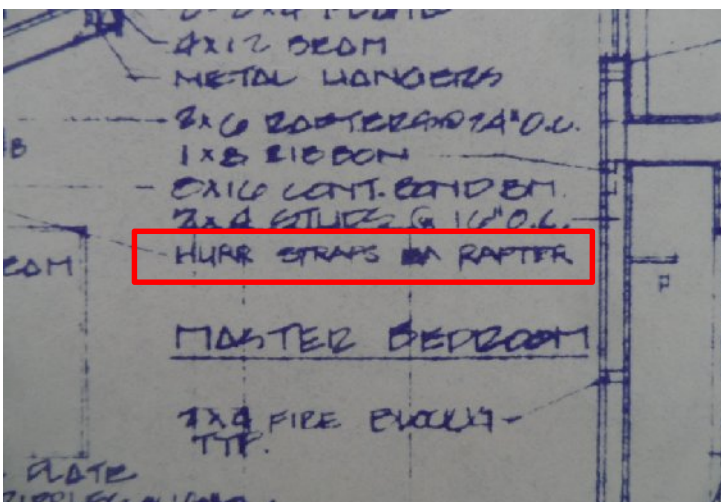 4X12 BEAM
METAL HANGERS
2X6 RAFTERS @ 24" O.C.
1X8 RIBBON
8X16 CONT. BOND BM.
2X4 STUDS @ 16" O.C.
HURR STRAPS EA RAFTER
EAM
MASTER BEDROOM
2X4 FIRE BLOCK'G
TYP.
PLATE